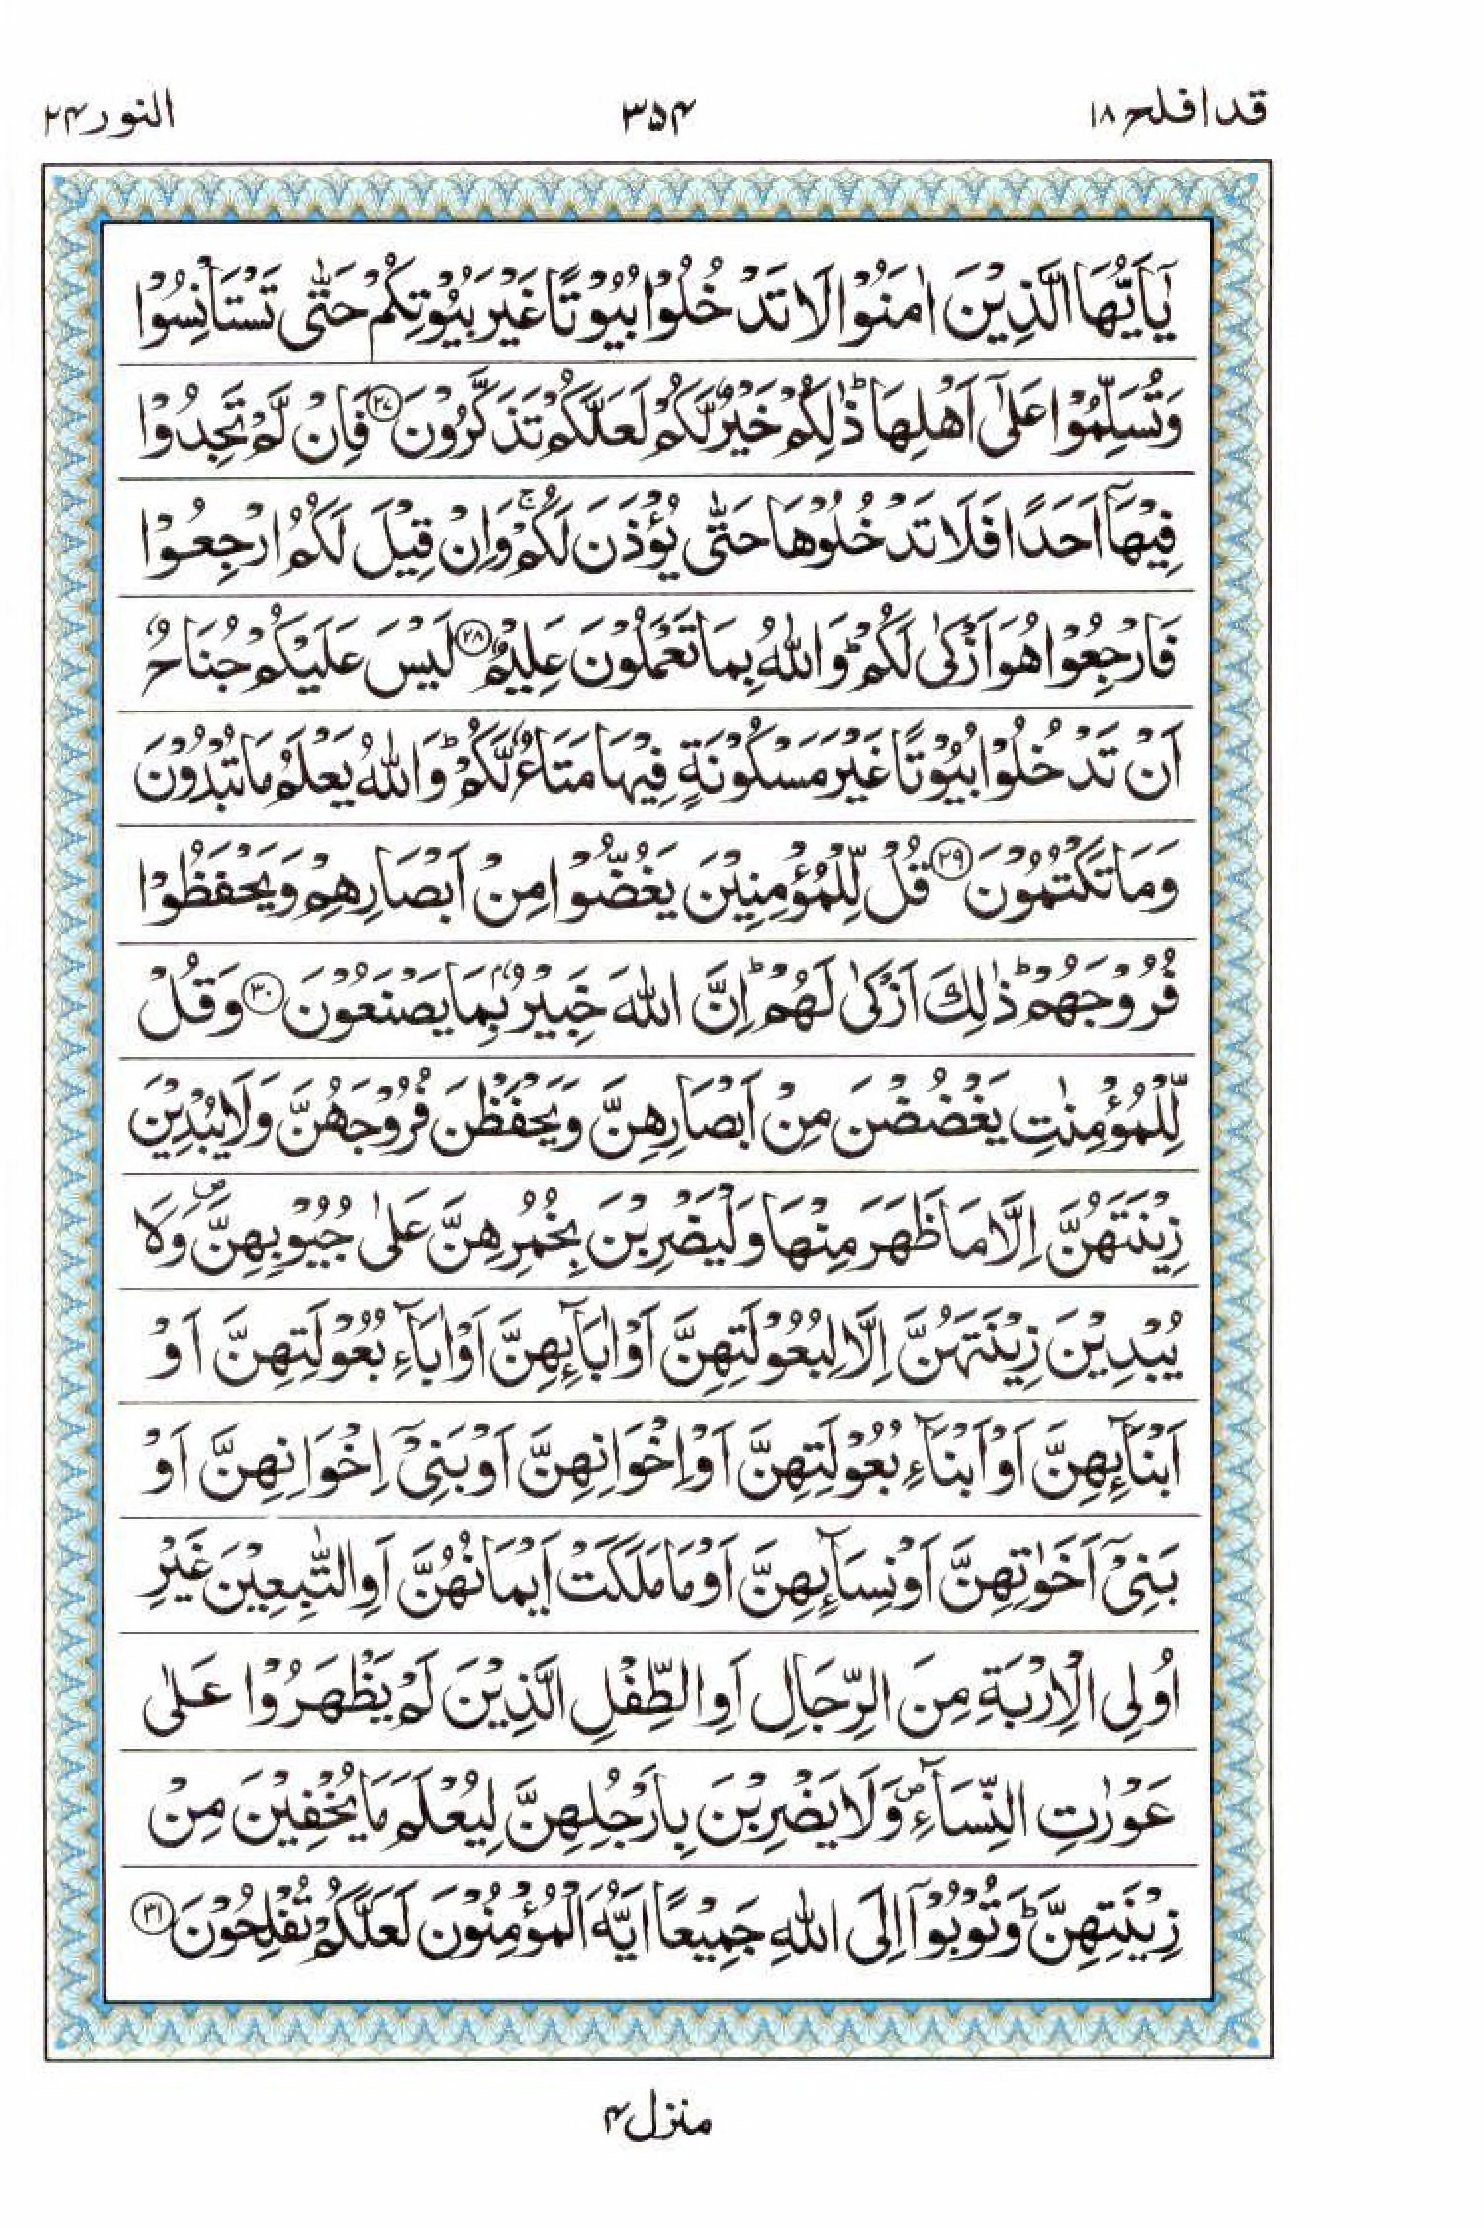 قد افلح ۱۸
۳۵۴
النور ۲۴
يٰٓاَيُّهَا الَّذِيْنَ اٰمَنُوْا لَا تَدْخُلُوْا بُيُوْتًا غَيْرَ بُيُوْتِكُمْ حَتّٰى تَسْتَاْنِسُوْا
وَتُسَلِّمُوْا عَلٰٓى اَهْلِهَا ؕ ذٰلِكُمْ خَيْرٌ لَّكُمْ لَعَلَّكُمْ تَذَكَّرُوْنَ ﴿۲۷﴾ فَاِنْ لَّمْ تَجِدُوْا
فِيْهَآ اَحَدًا فَلَا تَدْخُلُوْهَا حَتّٰى يُؤْذَنَ لَكُمْ ۚ وَاِنْ قِيْلَ لَكُمُ ارْجِعُوْا
فَارْجِعُوْا هُوَ اَزْكٰى لَكُمْ ؕ وَاللّٰهُ بِمَا تَعْمَلُوْنَ عَلِيْمٌ ﴿۲۸﴾ لَيْسَ عَلَيْكُمْ جُنَاحٌ
اَنْ تَدْخُلُوْا بُيُوْتًا غَيْرَ مَسْكُوْنَةٍ فِيْهَا مَتَاعٌ لَّكُمْ ؕ وَاللّٰهُ يَعْلَمُ مَا تُبْدُوْنَ
وَمَا تَكْتُمُوْنَ ﴿۲۹﴾ قُلْ لِّلْمُؤْمِنِيْنَ يَغُضُّوْا مِنْ اَبْصَارِهِمْ وَيَحْفَظُوْا
فُرُوْجَهُمْ ؕ ذٰلِكَ اَزْكٰى لَهُمْ ؕ اِنَّ اللّٰهَ خَبِيْرٌۢ بِمَا يَصْنَعُوْنَ ﴿۳۰﴾ وَقُلْ
لِّلْمُؤْمِنٰتِ يَغْضُضْنَ مِنْ اَبْصَارِهِنَّ وَيَحْفَظْنَ فُرُوْجَهُنَّ وَلَا يُبْدِيْنَ
زِيْنَتَهُنَّ اِلَّا مَا ظَهَرَ مِنْهَا وَلْيَضْرِبْنَ بِخُمُرِهِنَّ عَلٰى جُيُوْبِهِنَّ ۖ وَلَا
يُبْدِيْنَ زِيْنَتَهُنَّ اِلَّا لِبُعُوْلَتِهِنَّ اَوْ اٰبَآئِهِنَّ اَوْ اٰبَآءِ بُعُوْلَتِهِنَّ اَوْ
اَبْنَآئِهِنَّ اَوْ اَبْنَآءِ بُعُوْلَتِهِنَّ اَوْ اِخْوَانِهِنَّ اَوْ بَنِيْٓ اِخْوَانِهِنَّ اَوْ
بَنِيْٓ اَخَوٰتِهِنَّ اَوْ نِسَآئِهِنَّ اَوْ مَا مَلَكَتْ اَيْمَانُهُنَّ اَوِ التّٰبِعِيْنَ غَيْرِ
اُولِى الْاِرْبَةِ مِنَ الرِّجَالِ اَوِ الطِّفْلِ الَّذِيْنَ لَمْ يَظْهَرُوْا عَلٰى
عَوْرٰتِ النِّسَآءِ ۖ وَلَا يَضْرِبْنَ بِاَرْجُلِهِنَّ لِيُعْلَمَ مَا يُخْفِيْنَ مِنْ
زِيْنَتِهِنَّ ؕ وَتُوْبُوْٓا اِلَى اللّٰهِ جَمِيْعًا اَيُّهَ الْمُؤْمِنُوْنَ لَعَلَّكُمْ تُفْلِحُوْنَ ﴿۳۱﴾
منزل ۴